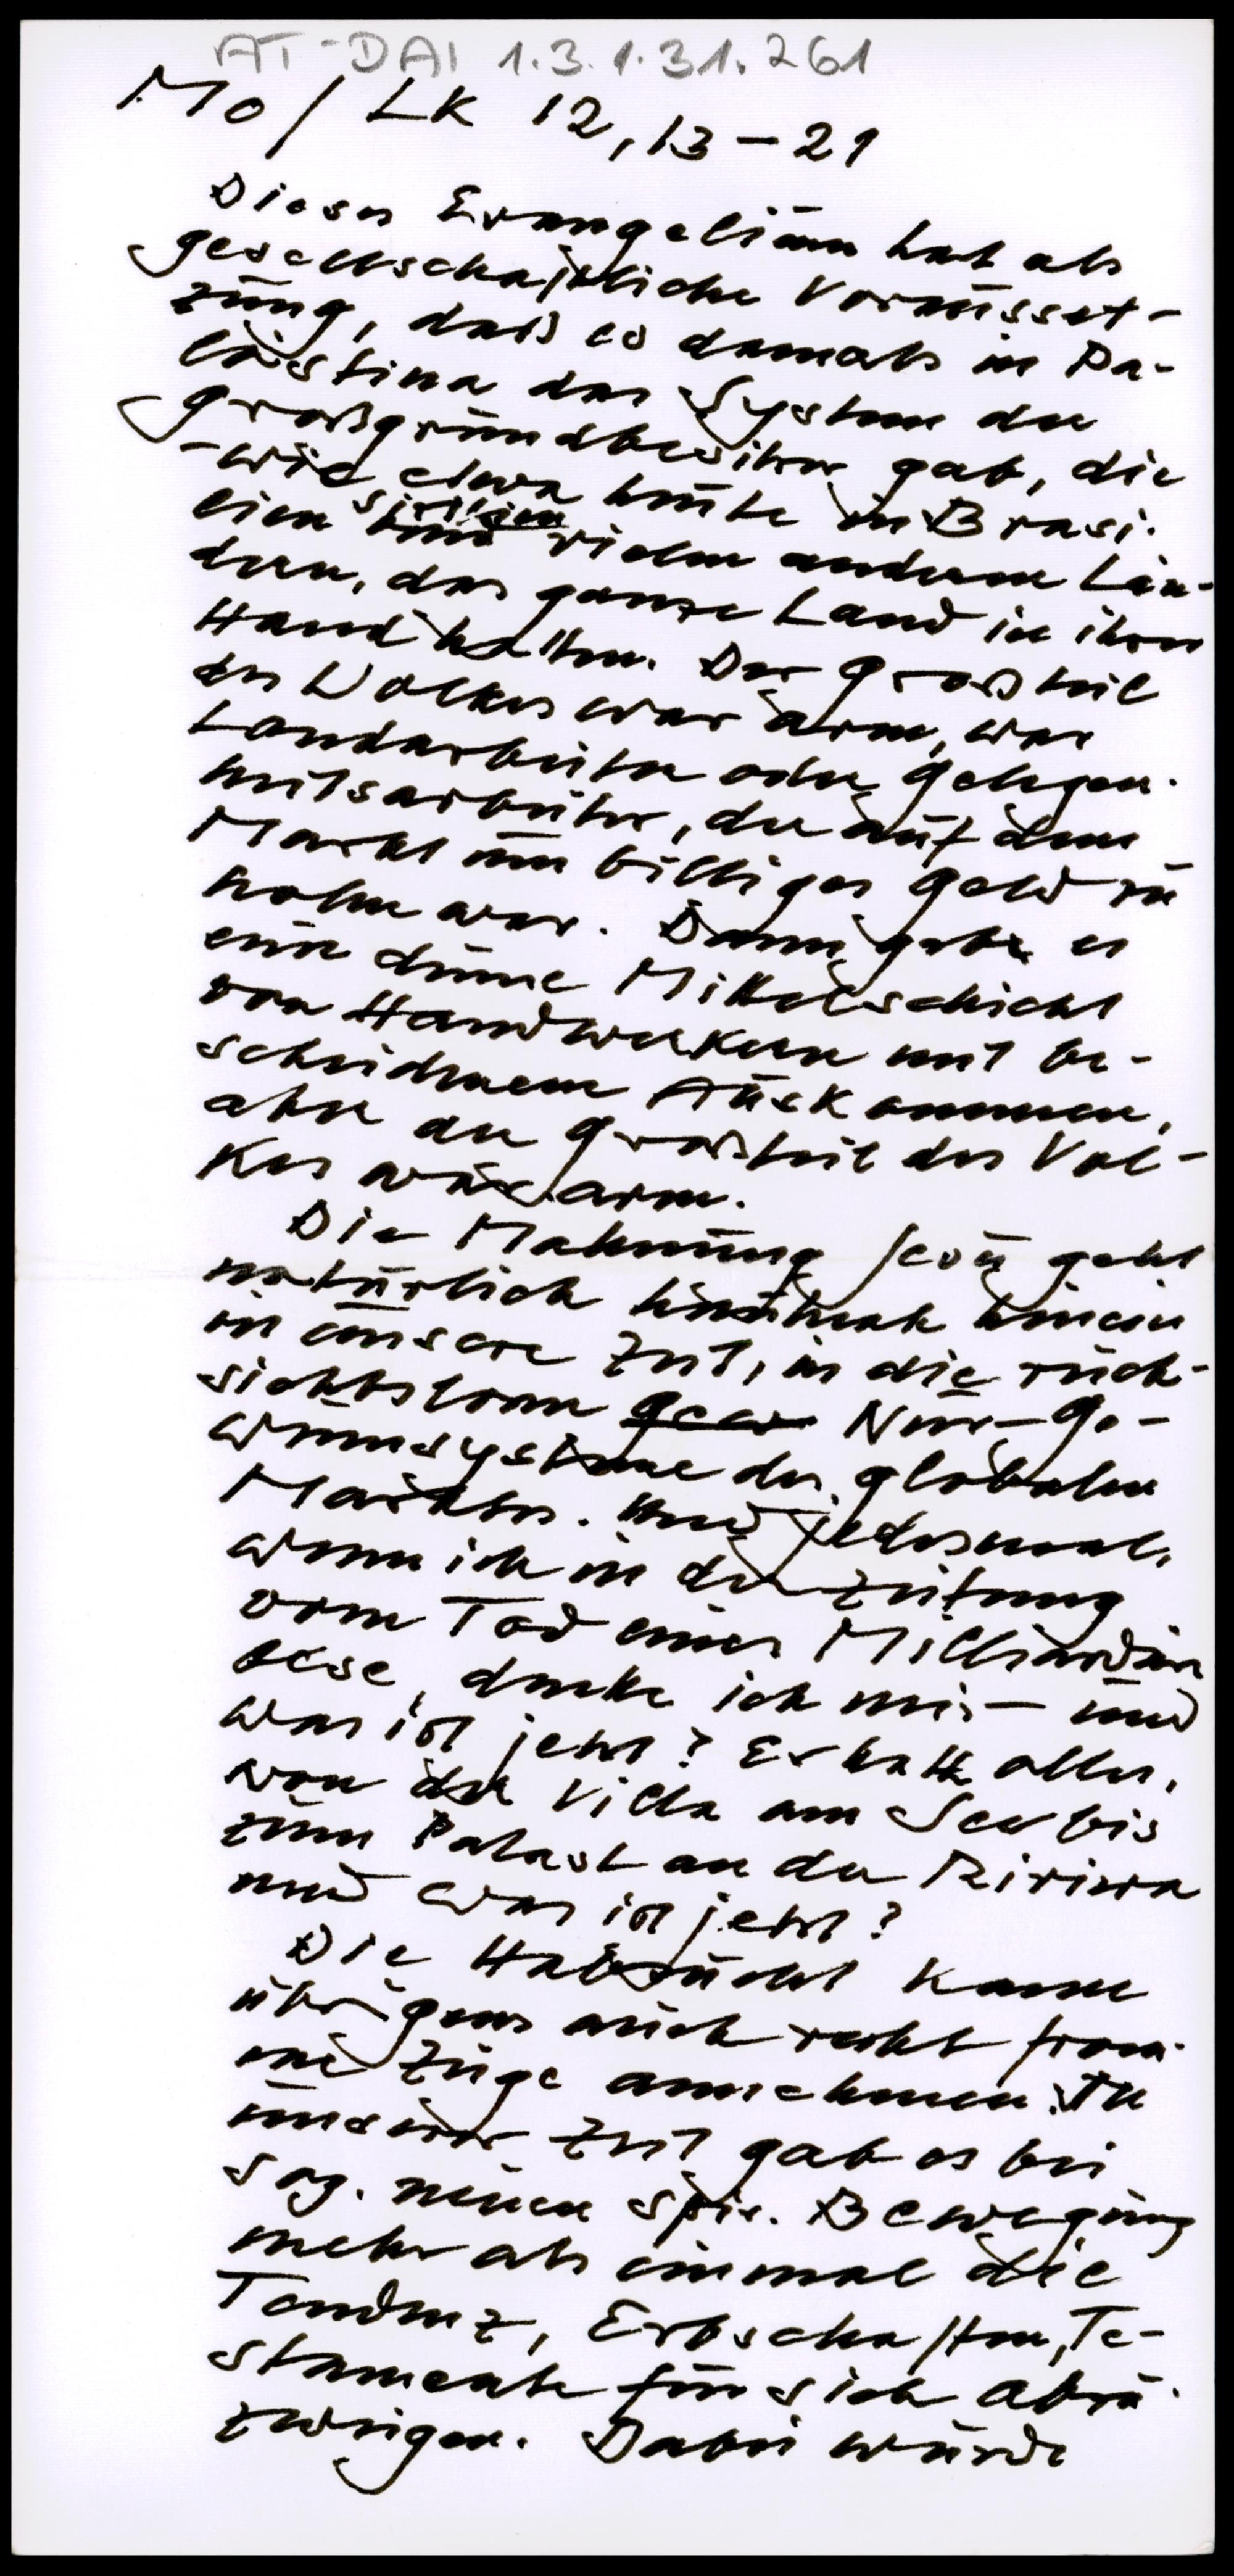 AT-DAI 1.3.1.31.261
Mo / LK 12,13-21
Dieses Evangelium hat als
gesellschaftliche Vorausset-
zung, daß es damals in Pa-
lästina das System der
Großgrundbesitzer gab, die
- wie etwa heute in Brasi-
lien und vielen anderen Län-
dern, das ganze Land in ihrer
Hand hatten. Der Großteil
des Volkes war arm, war
Landarbeiter oder Gelegen-
heitsarbeiter, der auf dem
Markt um billiges Geld zu
holen war. Dann gab es
eine dünne Mittelschicht
von Handwerkern mit be-
scheidenem Auskommen,
aber der Großteil des Vol-
kes war arm.
Die Mahnung Jesu geht
natürlich hinein
in unsere Zeit, in die rück-
sichtslosen Nur-Ge-
winnsysteme des globalen
Marktes. Und jedesmal,
wenn ich in der Zeitung
vom Tod eines Milliardärs
lese, denke ich mir - und
was ist jetzt? Er hatte alles,
von der Villa am See bis
zum Palast an der Riviera
und was ist jetzt?
Die Habsucht kann
übrigens auch recht from-
me Züge annehmen. In
unserer Zeit gab es bei
sog. neuen spir. Bewegung
mehr als einmal die
Tendenz, Erbschaften, Te-
stamente für sich abzu-
zweigen. Dabei wurde